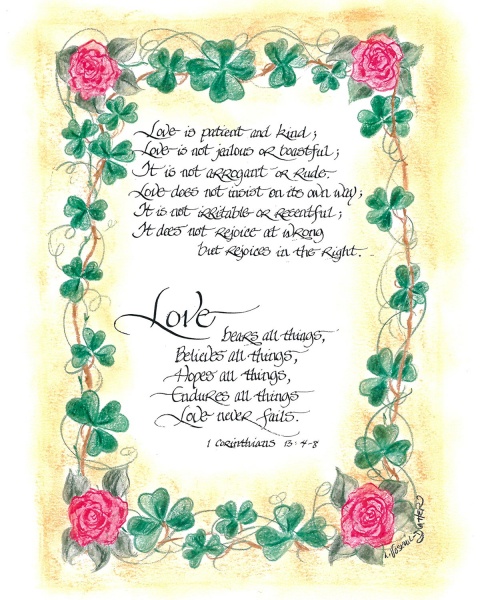 Love is patient and kind;
Love is not jealous or boastful;
It is not arrogant or rude.
Love does not insist on its own way;
It is not irritable or resentful;
It does not rejoice at wrong
but rejoices in the right.
Love
bears all things,
Believes all things,
Hopes all things,
Endures all things
Love never fails.
1 Corinthians 13:4-8